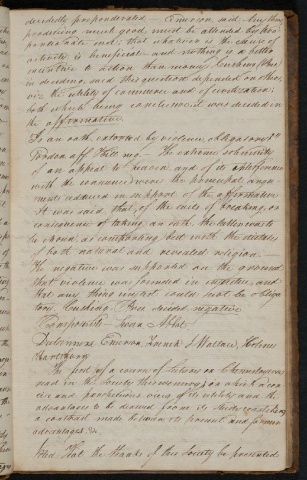 decidedly preponderated. — Emerson said any thing
producing much good must be attended by pro-
portionate evil; that whatever is the cause of
activity is beneficial and nothing is a better
incentive to action than money. Cushing (Pres)
in deciding, said this question depended on others,
viz. the utility of commerce and of civilization;
both which being conclusive, it was decided in
the affirmative
Is an oath, extorted by violence, obligatory?
Gordon aff Hall neg — The extreme solemnity
of an appeal to heaven and of its
with the consciences were the principal argu-
ments adduced in support of the affirmative
It was said that, of the evils of breaking, or
consequence of taking, an oath, the latter was to
be chosen as comporting best with the dictates
of both natural and revealed religion —
The negative was supported on the ground
that violence was founded in injustice and
that any thing unjust could not be obliga-
tory. Cushing Pres decided negative
Exeunt
Determined Emerson, & Wallace, Holmes
The first of a course of lectures on
read in the Society this evening, on which a con-
cise and perspicuous view of its utility and the
advantages to be derived from its study
a contrast made between its present and former
advantages &c
Voted, That the thanks of this Society be presented